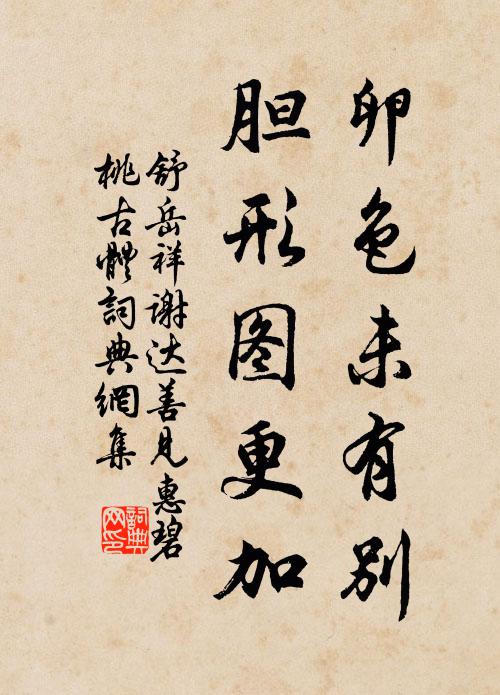 卵色未有别
胆形图更加
舒岳祥谢达善见惠碧
桃古體詞典網集
詞典网印